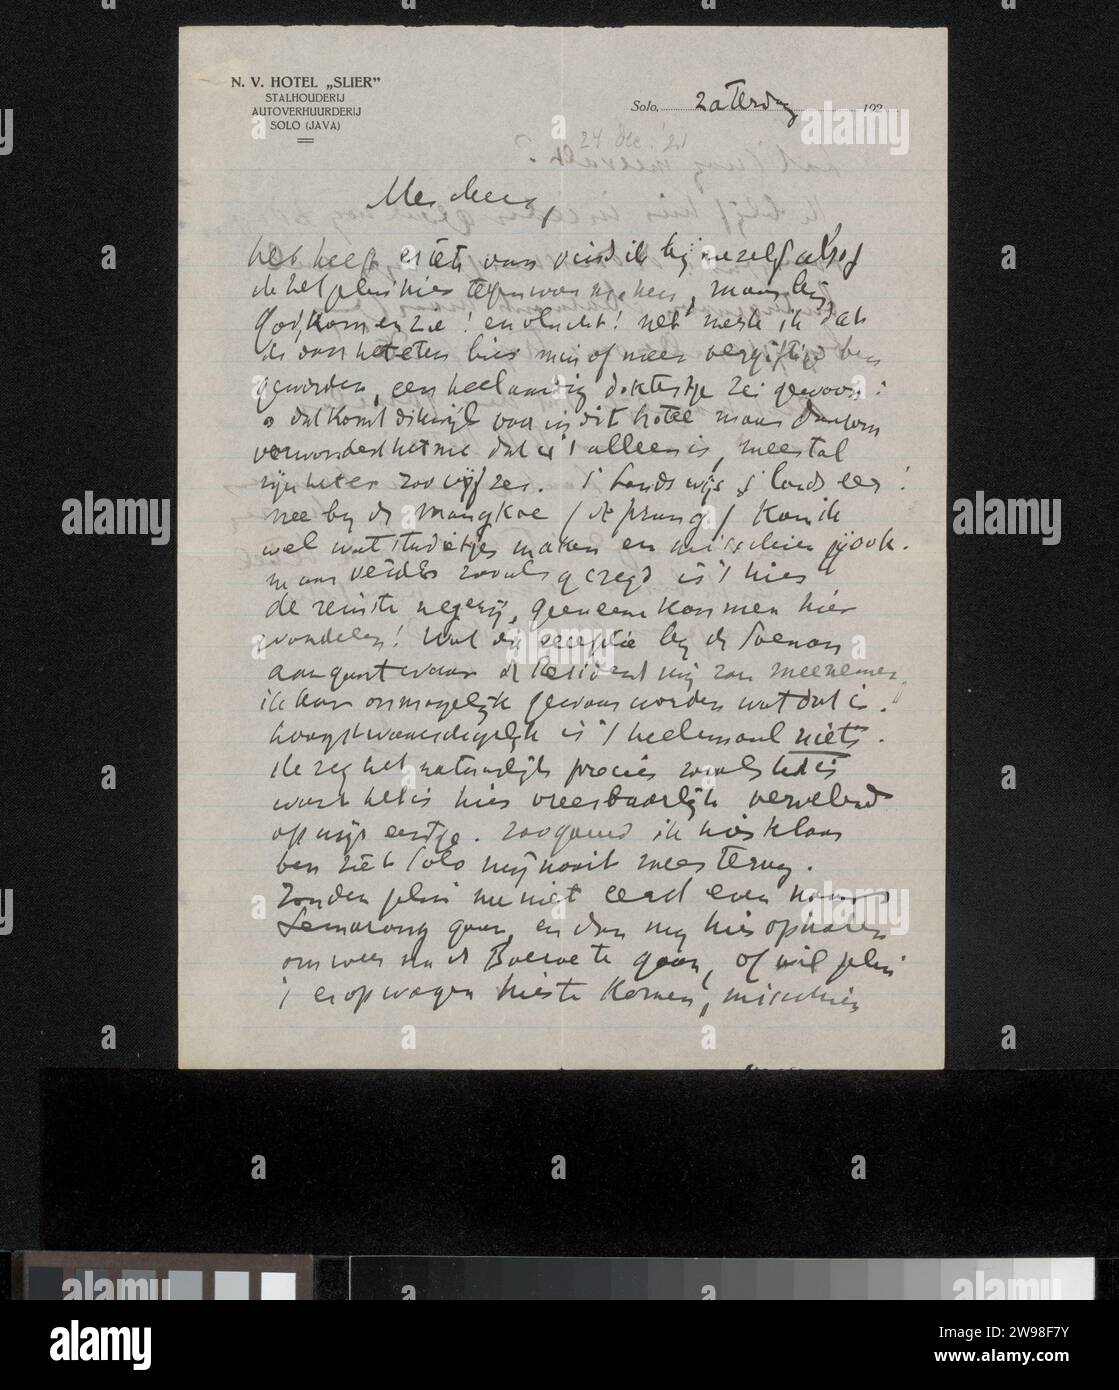 N. V. HOTEL „SLIER”
STALHOUDERIJ
AUTOVERHUURDERIJ
SOLO (JAVA)
Solo, Zaterdag 192
24 dec. '21
het heeft iets van vind ik bij mezelf alsof
de het hier tegenwoordig maar
Godkomenzie! en vlucht! net merk ik dat
ik door het eten hier min of meer vergiftigd ben
geworden, een heel aardig doktertje zei gewoon:
o dat komt dikwijls voor in dit hotel maar daarom
verwondert het me dat u 't alleen is, meestal
zijn het er zoo vijf zes. 's lands wijs 's lands eer!
nee bij de Mangkoe / de prang / kan ik
wel wat studietjes maken en misschien jij ook.
maar verder zooals gezegd is 't hier
de reinste negerij, geen eene kan men hier
wandelen! Wat die receptie bij de Soenan
aangaat waar de Resident mij zou meenemen,
ik kan onmogelijk gewaar worden wat dat is.
hoogstwaarschijnlijk is 't heelemaal niets.
ik zeg het natuurlijk precies zooals het is
want het is hier vreesbaarlijk vervelend
op mijn eentje. zoo gauw ik hier klaar
ben ziet Solo mij nooit meer terug.
zonden jelui nu niet eerst even naar
Semarang gaan, en dan mij hier ophalen
om weer na de Boeroe te gaan, of wil jelui
't er op wagen hier te komen, misschien
alamy
a
alamy
Image ID: 2W98F7Y
www.alamy.com